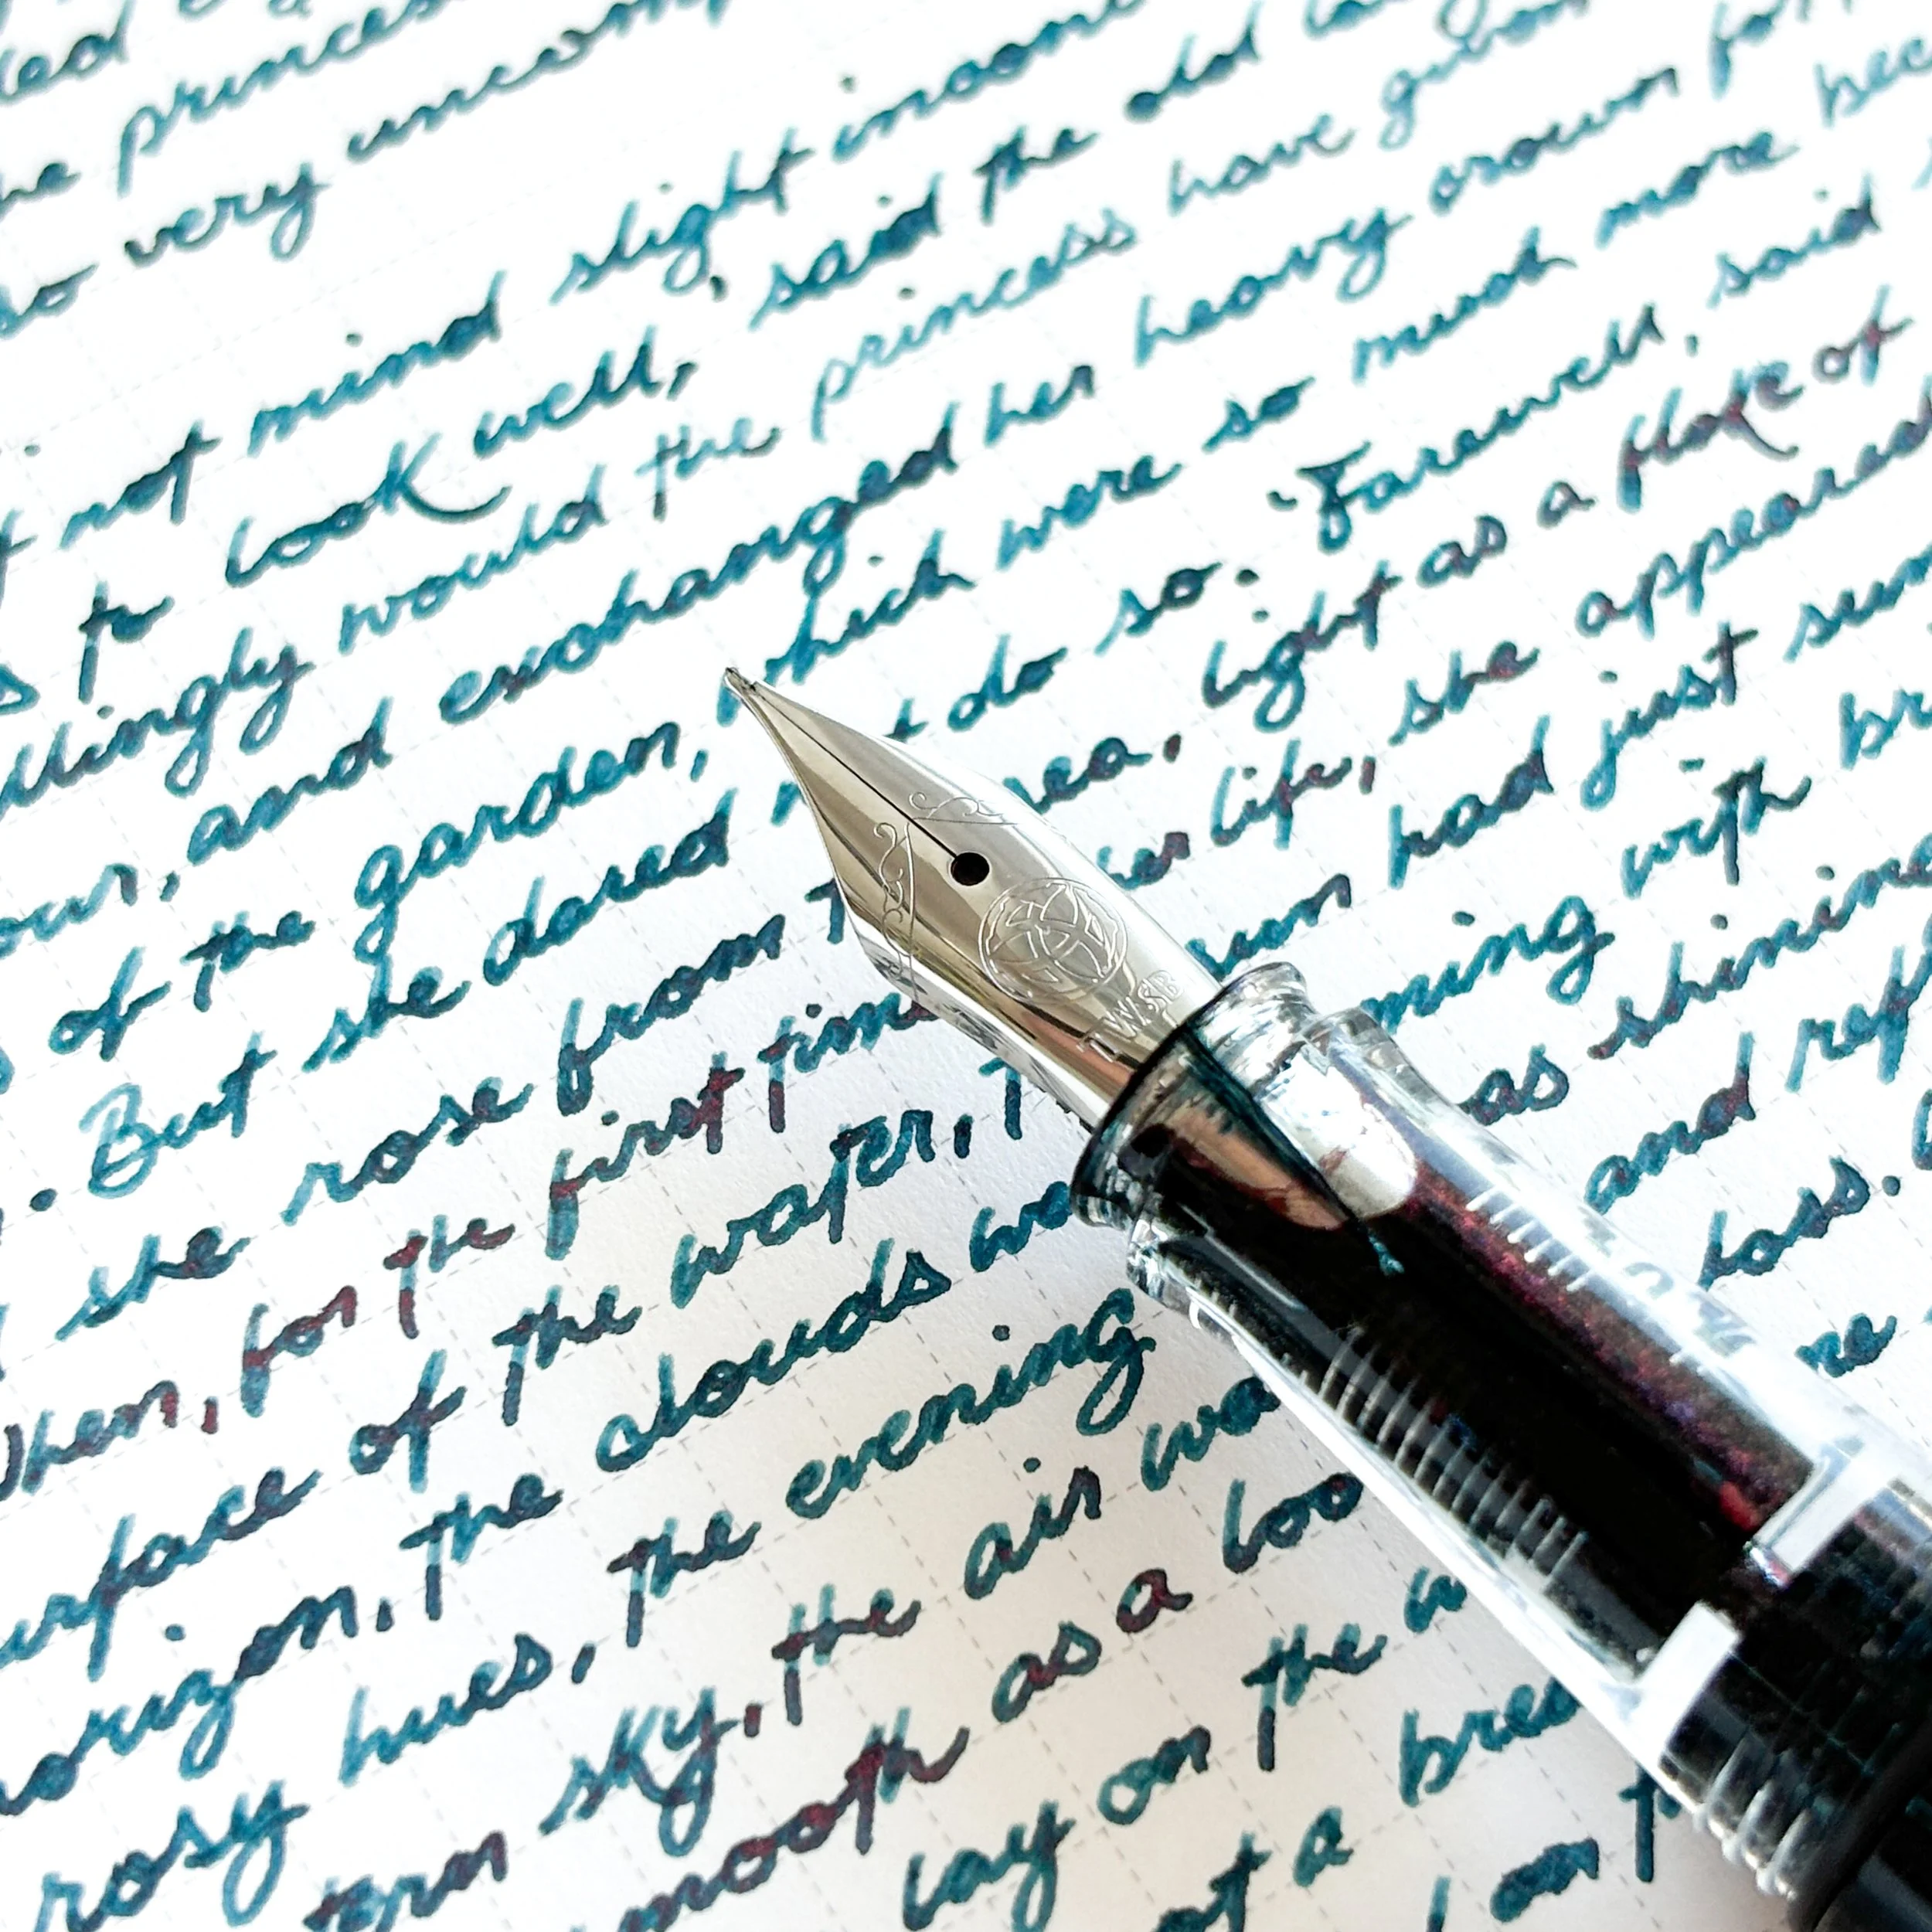 princes
so very uncom
not mind slight incon
to look well, said the old
would the princess have given
and exchanged her heavy crown for
of the garden, which were so much more bec
. But she dared do so. "Farewell, said
she rose from light as a flake of
When, for the first time life, she appeared
surface of the water, had just sun
horizon, the clouds with br
rosy hues, the evening as shining
sky, the air and refl
smooth as a loss.
lay on the
not a
TWSBI